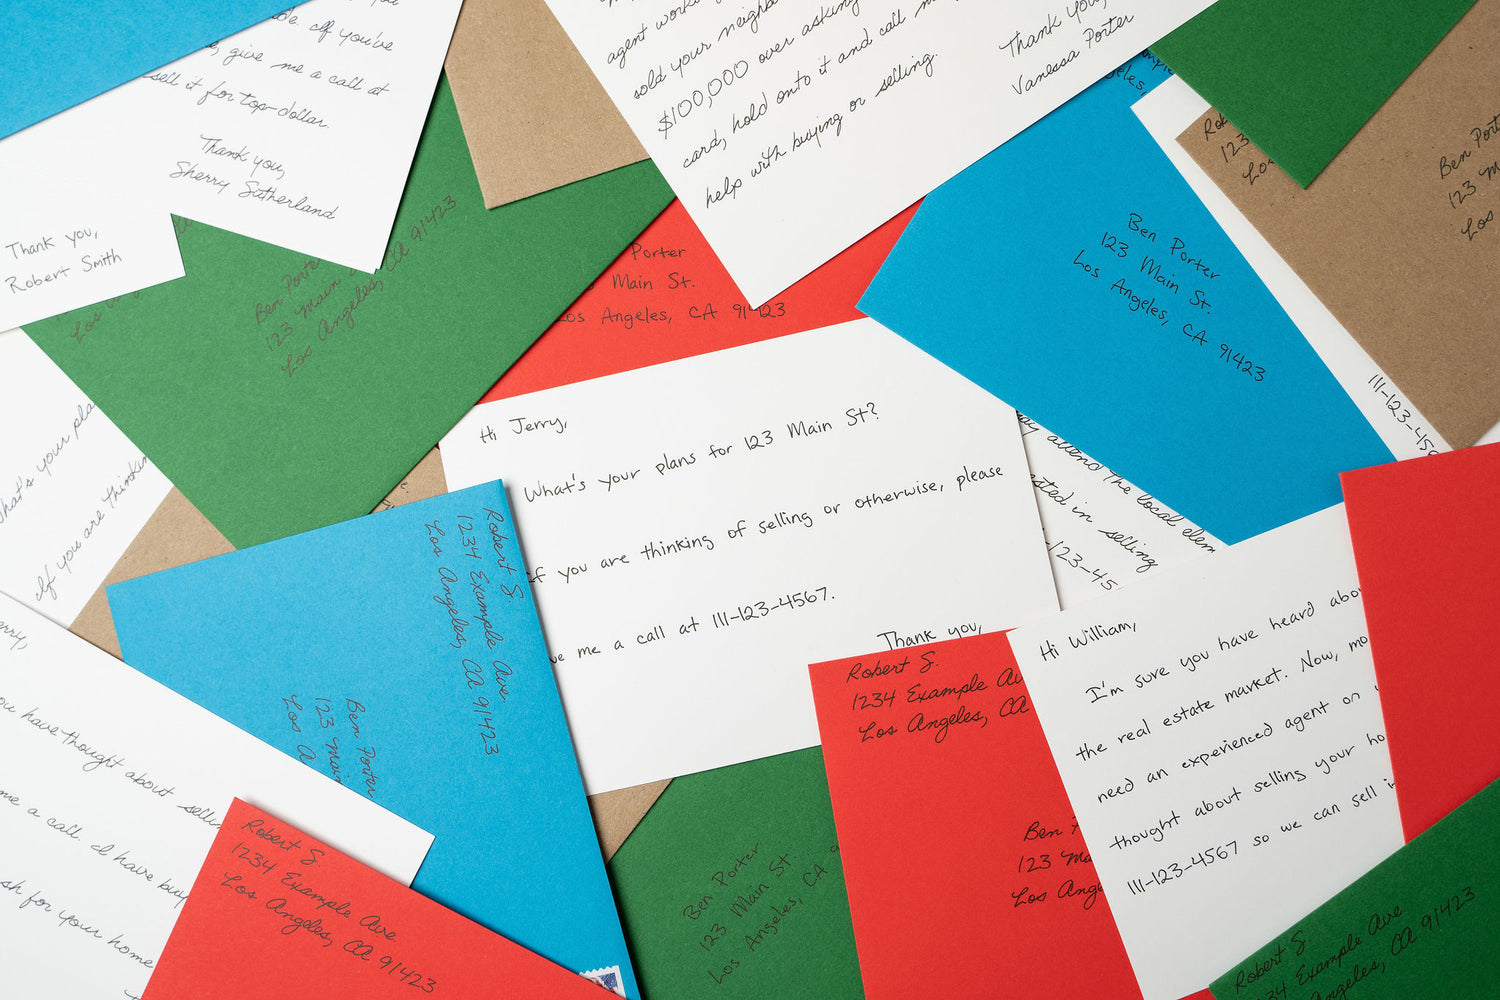 you
give me a call at
sell it for top-dollar.
Thank you,
Sherry Sutherland
Thank you,
Robert Smith
sold your neighb
$100,000 over asking
card, hold onto it and call m
help with buying or selling.
Thank you,
Vanessa Porter
Ben Porter
123 Main
Los Angeles, CA 91423
Porter
Main St.
Los Angeles, CA 91423
Ben Porter
123 Main St.
Los Angeles, CA 91423
Ben Port
123 M
Los
111-123-456
What's your pla
If you are thinkin
Hi Jerry,
What's your plans for 123 Main St?
If you are thinking of selling or otherwise, please
ve me a call at 111-123-4567.
Thank you,
ay attend the local elem
sted in selling
-123-45
Robert S.
1234 Example Ave.
Los Angeles, CA 91423
Ben Porter
123 Main
Los A
erry,
ou have thought about sellin
me a call. I have buy
sh for your home
Robert S.
1234 Example Ave.
Los Angeles, CA 91423
Ben Porter
123 Main St.
Los Angeles, CA 9
Robert S.
1234 Example Av
Los Angeles, CA
Ben P
123 Ma
Los Ange
Hi William,
I'm sure you have heard abou
the real estate market. Now, mo
need an experienced agent on y
thought about selling your ho
111-123-4567 so we can sell i
Robert S.
34 Example Ave
ngeles, CA 91423